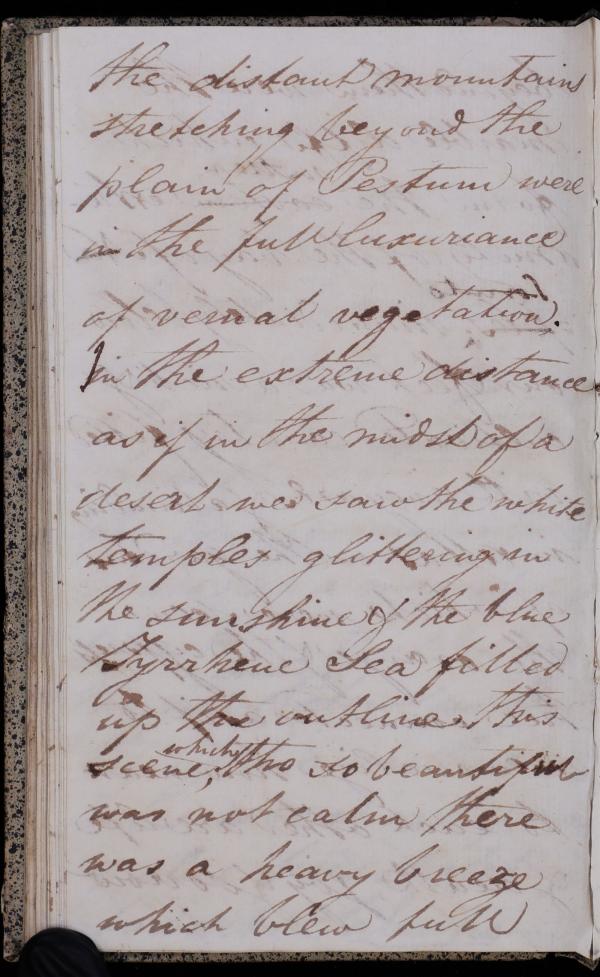 the distant mountains
stretching beyond the
plain of Pestum were
in the full luxuriance
of vernal vegetation.
In the extreme distance
as if in the midst of a
desert we saw the white
temples glittering in
the sunshine & the blue
Tyrrhene Sea filled
up the outline. This
which
scene, tho so beautiful
was not calm there
was a heavy breeze
which blew full